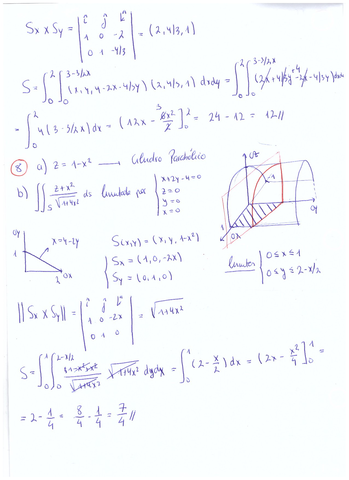 Sx x Sy = | î ĵ k̂ | = (2, 4/3, 1)
1 0 -2
0 1 -4/3
S = ∫₀² ∫₀^(3-3/2x) (x, y, 4-2x-4/3y) (2, 4/3, 1) dxdy = ∫₀² ∫₀^(3-3/2x) (2x+4/3y+4-2x-4/3y) dydx
= ∫₀² 4(3-3/2x) dx = (12x - 6x²/2)]₀² = 24 - 12 = 12//
8 a) z = 1-x² → Cilindro Parabólico
b) ∬_S z+x²/√(1+4x²) ds limitado por { x+2y-4=0
z=0
y=0
x=0
oy
1
x=4-2y
2
ox
S(x,y) = (x, y, 1-x²)
Sx = (1, 0, -2x)
Sy = (0, 1, 0)
oz
1
1
ox
oy
limites { 0≤x≤1
0≤y≤2-x/2
||Sx x Sy|| = | î ĵ k̂ | = √(1+4x²)
1 0 -2x
0 1 0
S = ∫₀¹ ∫₀^(2-x/2) (1-x²+x²)/√(1+4x²) √(1+4x²) dydx = ∫₀¹ (2 - x/2) dx = (2x - x²/4)]₀¹ =
= 2 - 1/4 = 8/4 - 1/4 = 7/4 //